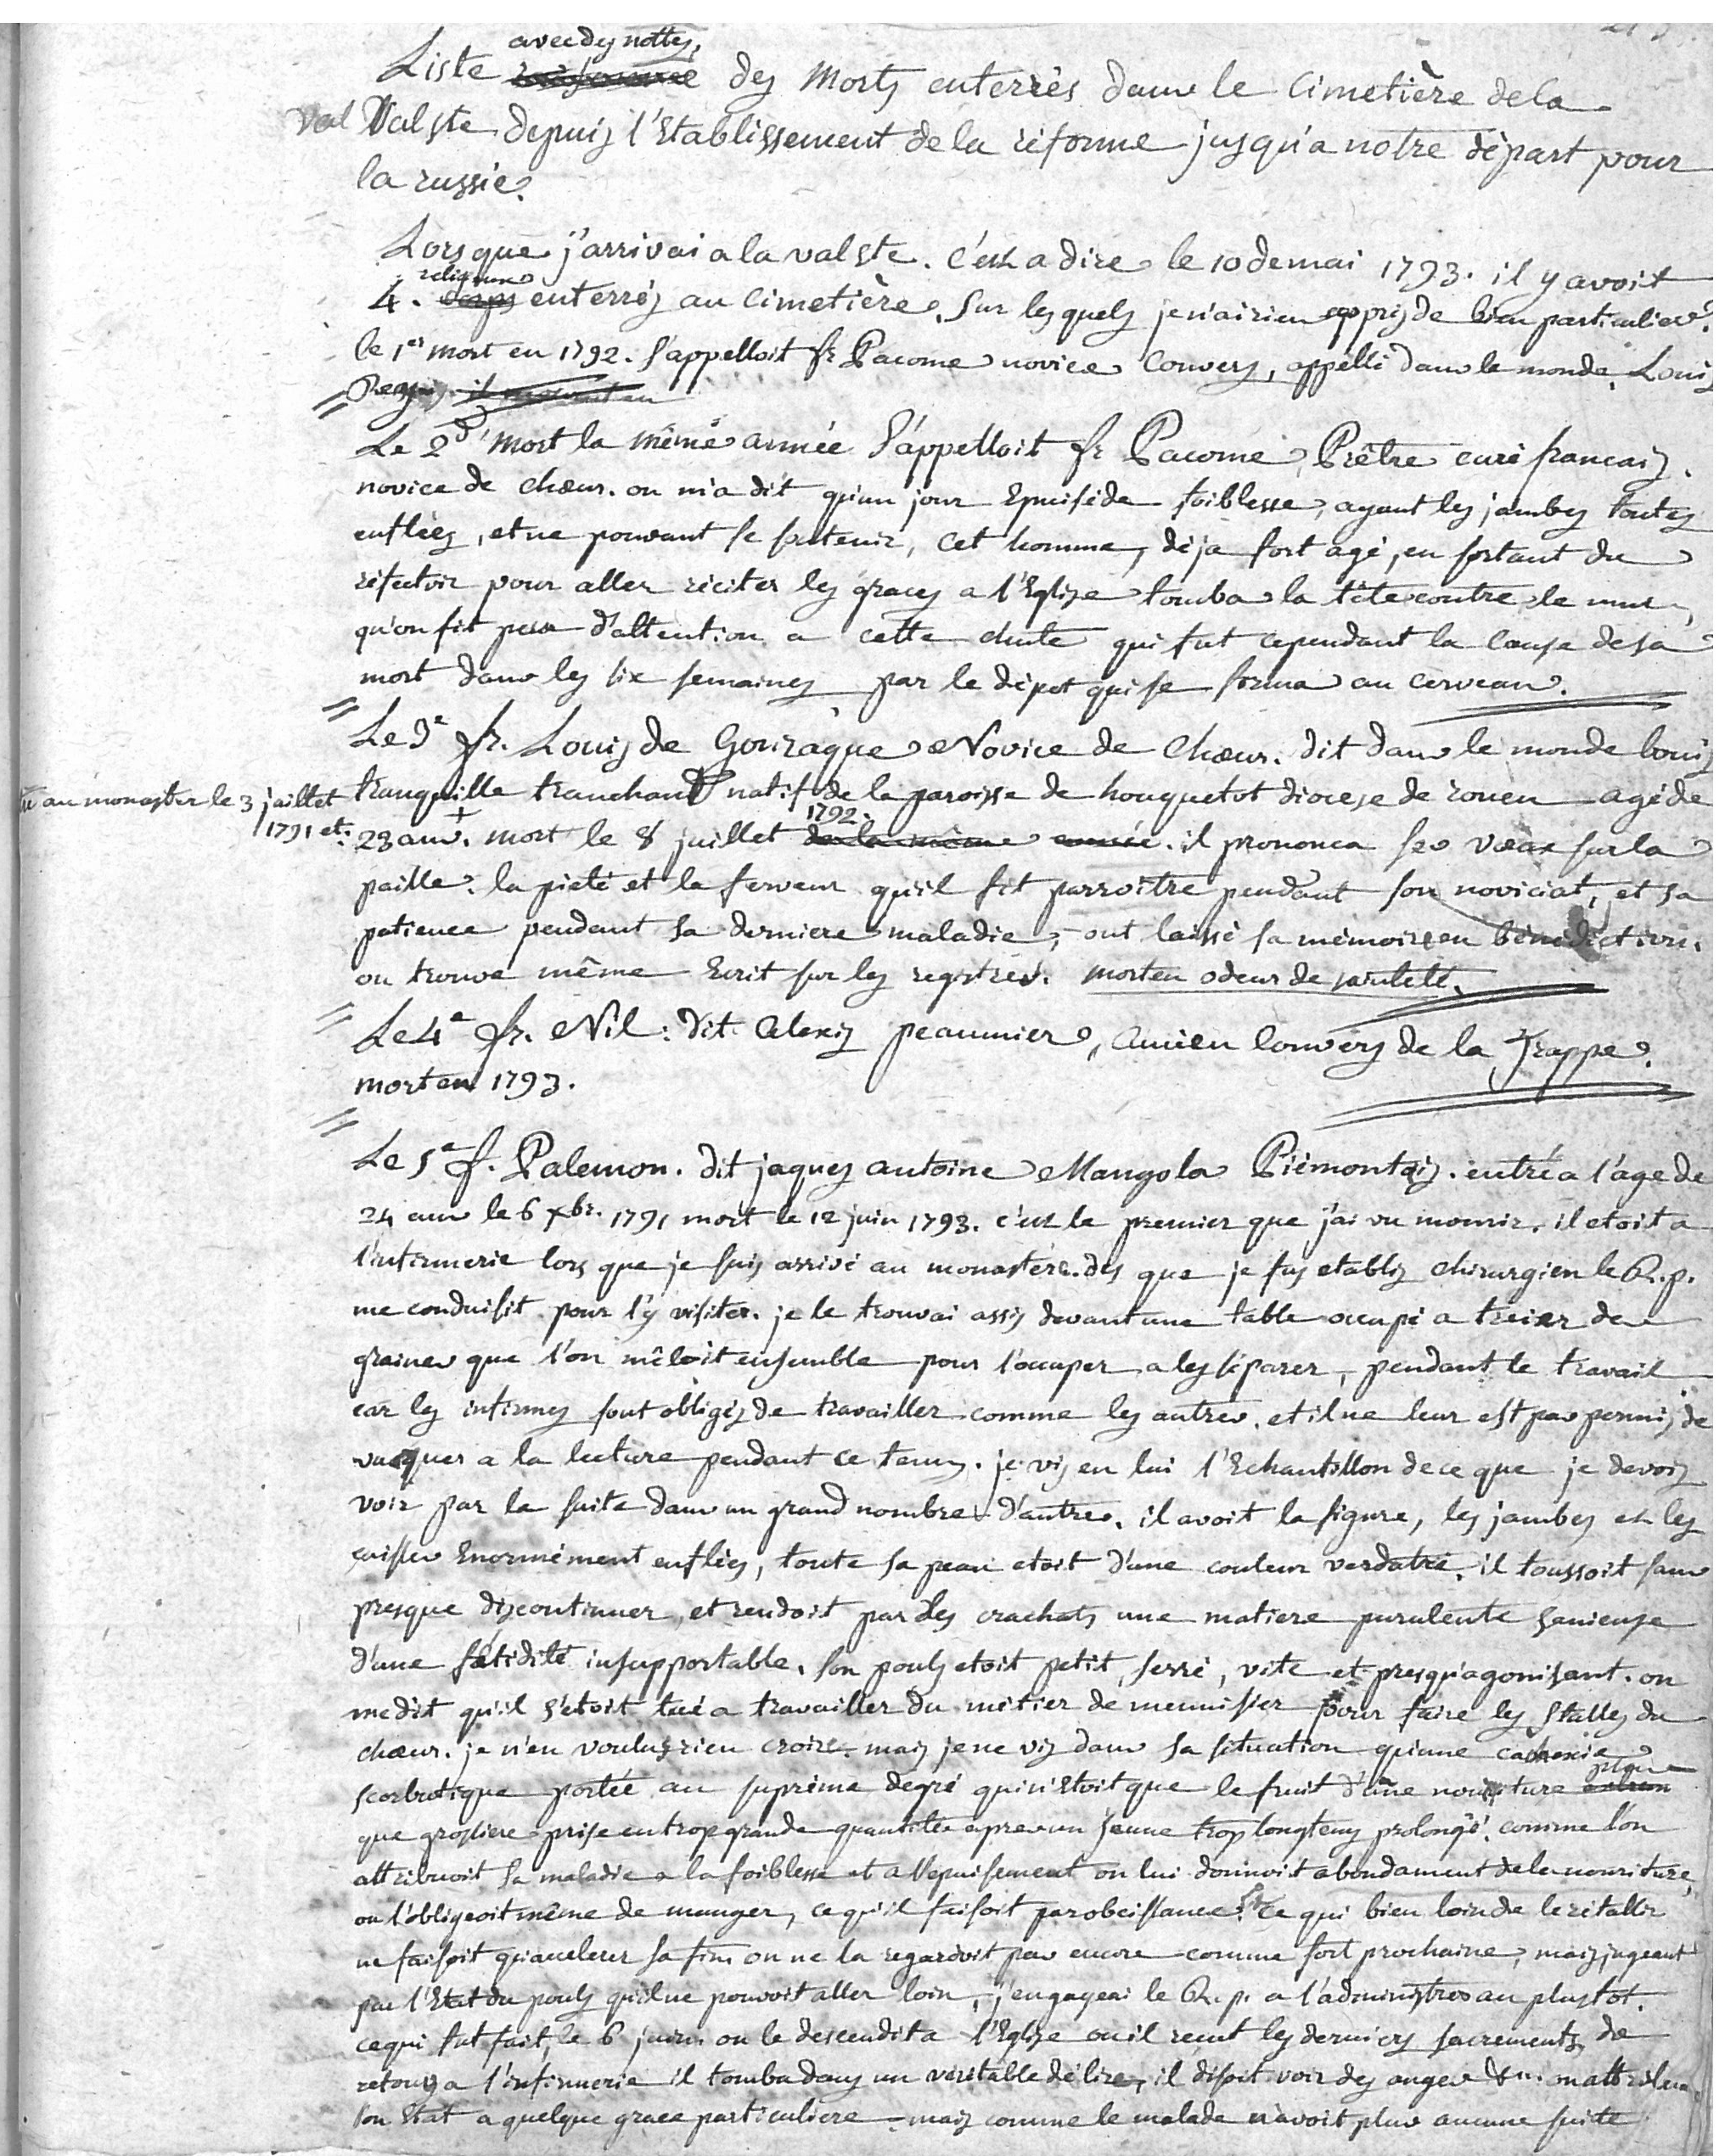 avec des nottes,
Liste des Morts enterrés dans le Cimetière de la
Val Valste depuis l'Etablissement de la réforme jusqu'a notre départ pour
la russie.
Lorsque j'arrivai a la valste. c'est a dire le 10 de mai 1793. il y avoit
religieux
4. corps enterrés au Cimetière. Sur les quels je n'ai rien appris de bien particulier.
le 1er mort en 1792. s'appelloit fr Pacome novice Convers, appellé dans le monde Louis
il mourut en
Le 2d mort la même année s'appelloit fr Pacome, Prêtre curé francais.
novice de chœur. on m'a dit qu'un jour Epuisé de foiblesse, ayant les jambes toutes
enflées, et ne pouvant se soutenir, cet homme, déja fort agé, en sortant du
réfectoir pour aller réciter les graces a l'Eglise tomba la tête contre le mur,
qu'on fit peu d'attention a cette chute qui fut cependant la cause de sa
mort dans les six semaines par le dépot qui se forma au cerveau.
Le 3e fr. Louis de Gonzague Novice de Chœur. dit dans le monde louis
tranquille tranchant natif de la paroisse de houquetot diocese de rouen agé de
au monaster le 3 juillet
1791 et.
1792.
23 ans. mort le 8 juillet de la même année. il prononca ses vœux sur la
paille. la pieté et la ferveur qu'il fit parroitre pendant son noviciat, et sa
patience pendant sa derniere maladie, ont laissé sa mémoire en bénédiction.
on trouve même Ecrit sur les registres. mort en odeur de sainteté.
Le 4e fr. Nil: dit Alexis peaumier, ancien Convers de la Trappe.
mort en 1793.
Le 5e f. Palemon. dit jaques antoine Mangola Piémontais. entré a l'age de
24 ans le 6 xbr. 1791 mort le 12 juin 1793. c'est le premier que j'ai vu mourir. il etoit a
l'infirmerie lors que je suis arrivé au monastère. des que je fus etablis chirurgien le R.p.
me conduisit pour l'y visiter. je le trouvai assis devant une table occupé a trier des
graines que l'on mêloit ensemble pour l'occuper a les séparer, pendant le travail
car les infirmes sont obligés de travailler comme les autres. et il ne leur est pas permis de
vaquer a la lecture pendant ce tems. je vis en lui l'Echantillon de ce que je devois
voir par la suite dans un grand nombre d'autres. il avoit la figure, les jambes et les
cuisses Enormément enflées, toute sa peau etoit d'une couleur verdatre. il toussoit sans
presque discontinuer, et rendoit par des crachats une matiere purulente sanieuse
d'une fétidité insupportable. son pouls etoit petit, serré, vite et presqu'agonisant. on
me dit qu'il s'etoit tué a travailler du métier de menuisier pour faire les stalles du
chœur. je n'en voulus rien croire. mais je ne vis dans sa situation qu'une cachexie
scorbutique portée au suprème degré qui n'etoit que le fruit d'une nouriture
que grossiere prise en trop grande quantitée apres un jeune trop longtems prolongé. comme l'on
attribuoit sa maladie a la foiblesse et a l'epuisement on lui donnoit abondament de la nouriture,
on l'obligeoit même de manger, ce qu'il faisoit par obeissance. Ce qui bien loin de le rétablir
ne faisoit qu'accelerer sa fin. on ne la regardoit pas encore comme fort prochaine, mais jugeant
par l'Etat du pouls qu'il ne pouvoit aller loin, j'engageai le R.p. a l'administrer au plustot.
ce qui fut fait, le 6 juin. on le descendit a l'Eglise ou il recut les derniers sacrements, de
retour a l'infirmerie il tomba dans un véritable délire, il disoit voir des anges
son Etat a quelque grace particuliere mais comme le malade n'avoit plus aucune suite